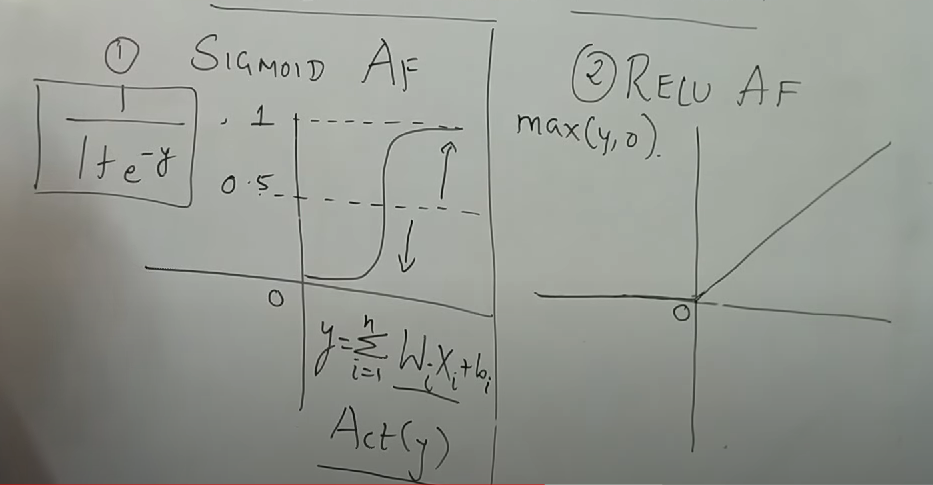 ① SIGMOID AF
1
1+e^-y
1
0.5
0
y=Σ_{i=1}^{n} W_i X_i + b_i
Act(y)
② RELU AF
max(y,0).
0